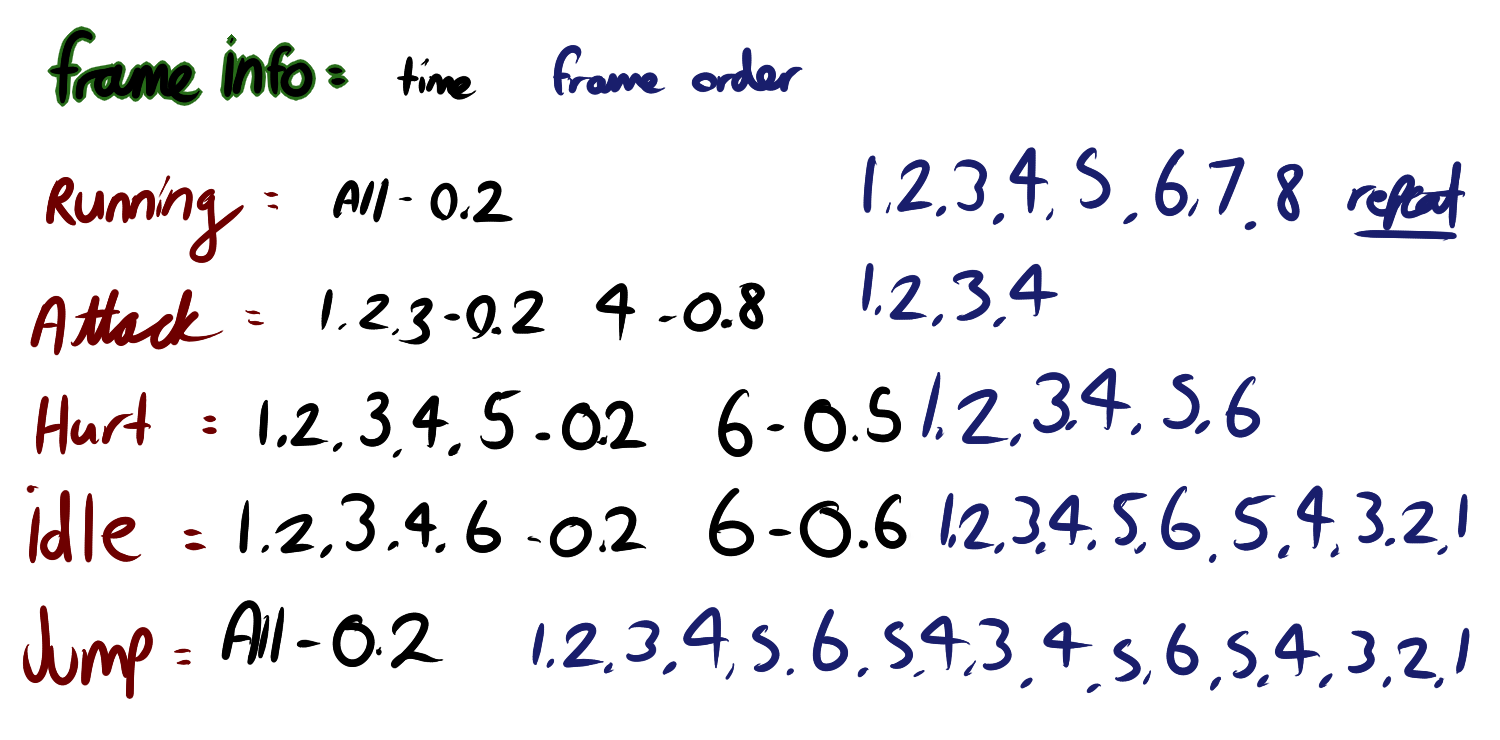 frame info = time frame order
Running = All - 0.2 1,2,3,4,5,6,7,8 repeat
Attack = 1,2,3-0.2 4-0.8 1,2,3,4
Hurt = 1,2,3,4,5-0.2 6-0.5 1,2,3,4,5,6
idle = 1,2,3,4,6-0.2 6-0.6 1,2,3,4,5,6,5,4,3,2,1
Jump = All-0.2 1,2,3,4,5,6,5,4,3,4,5,6,5,4,3,2,1